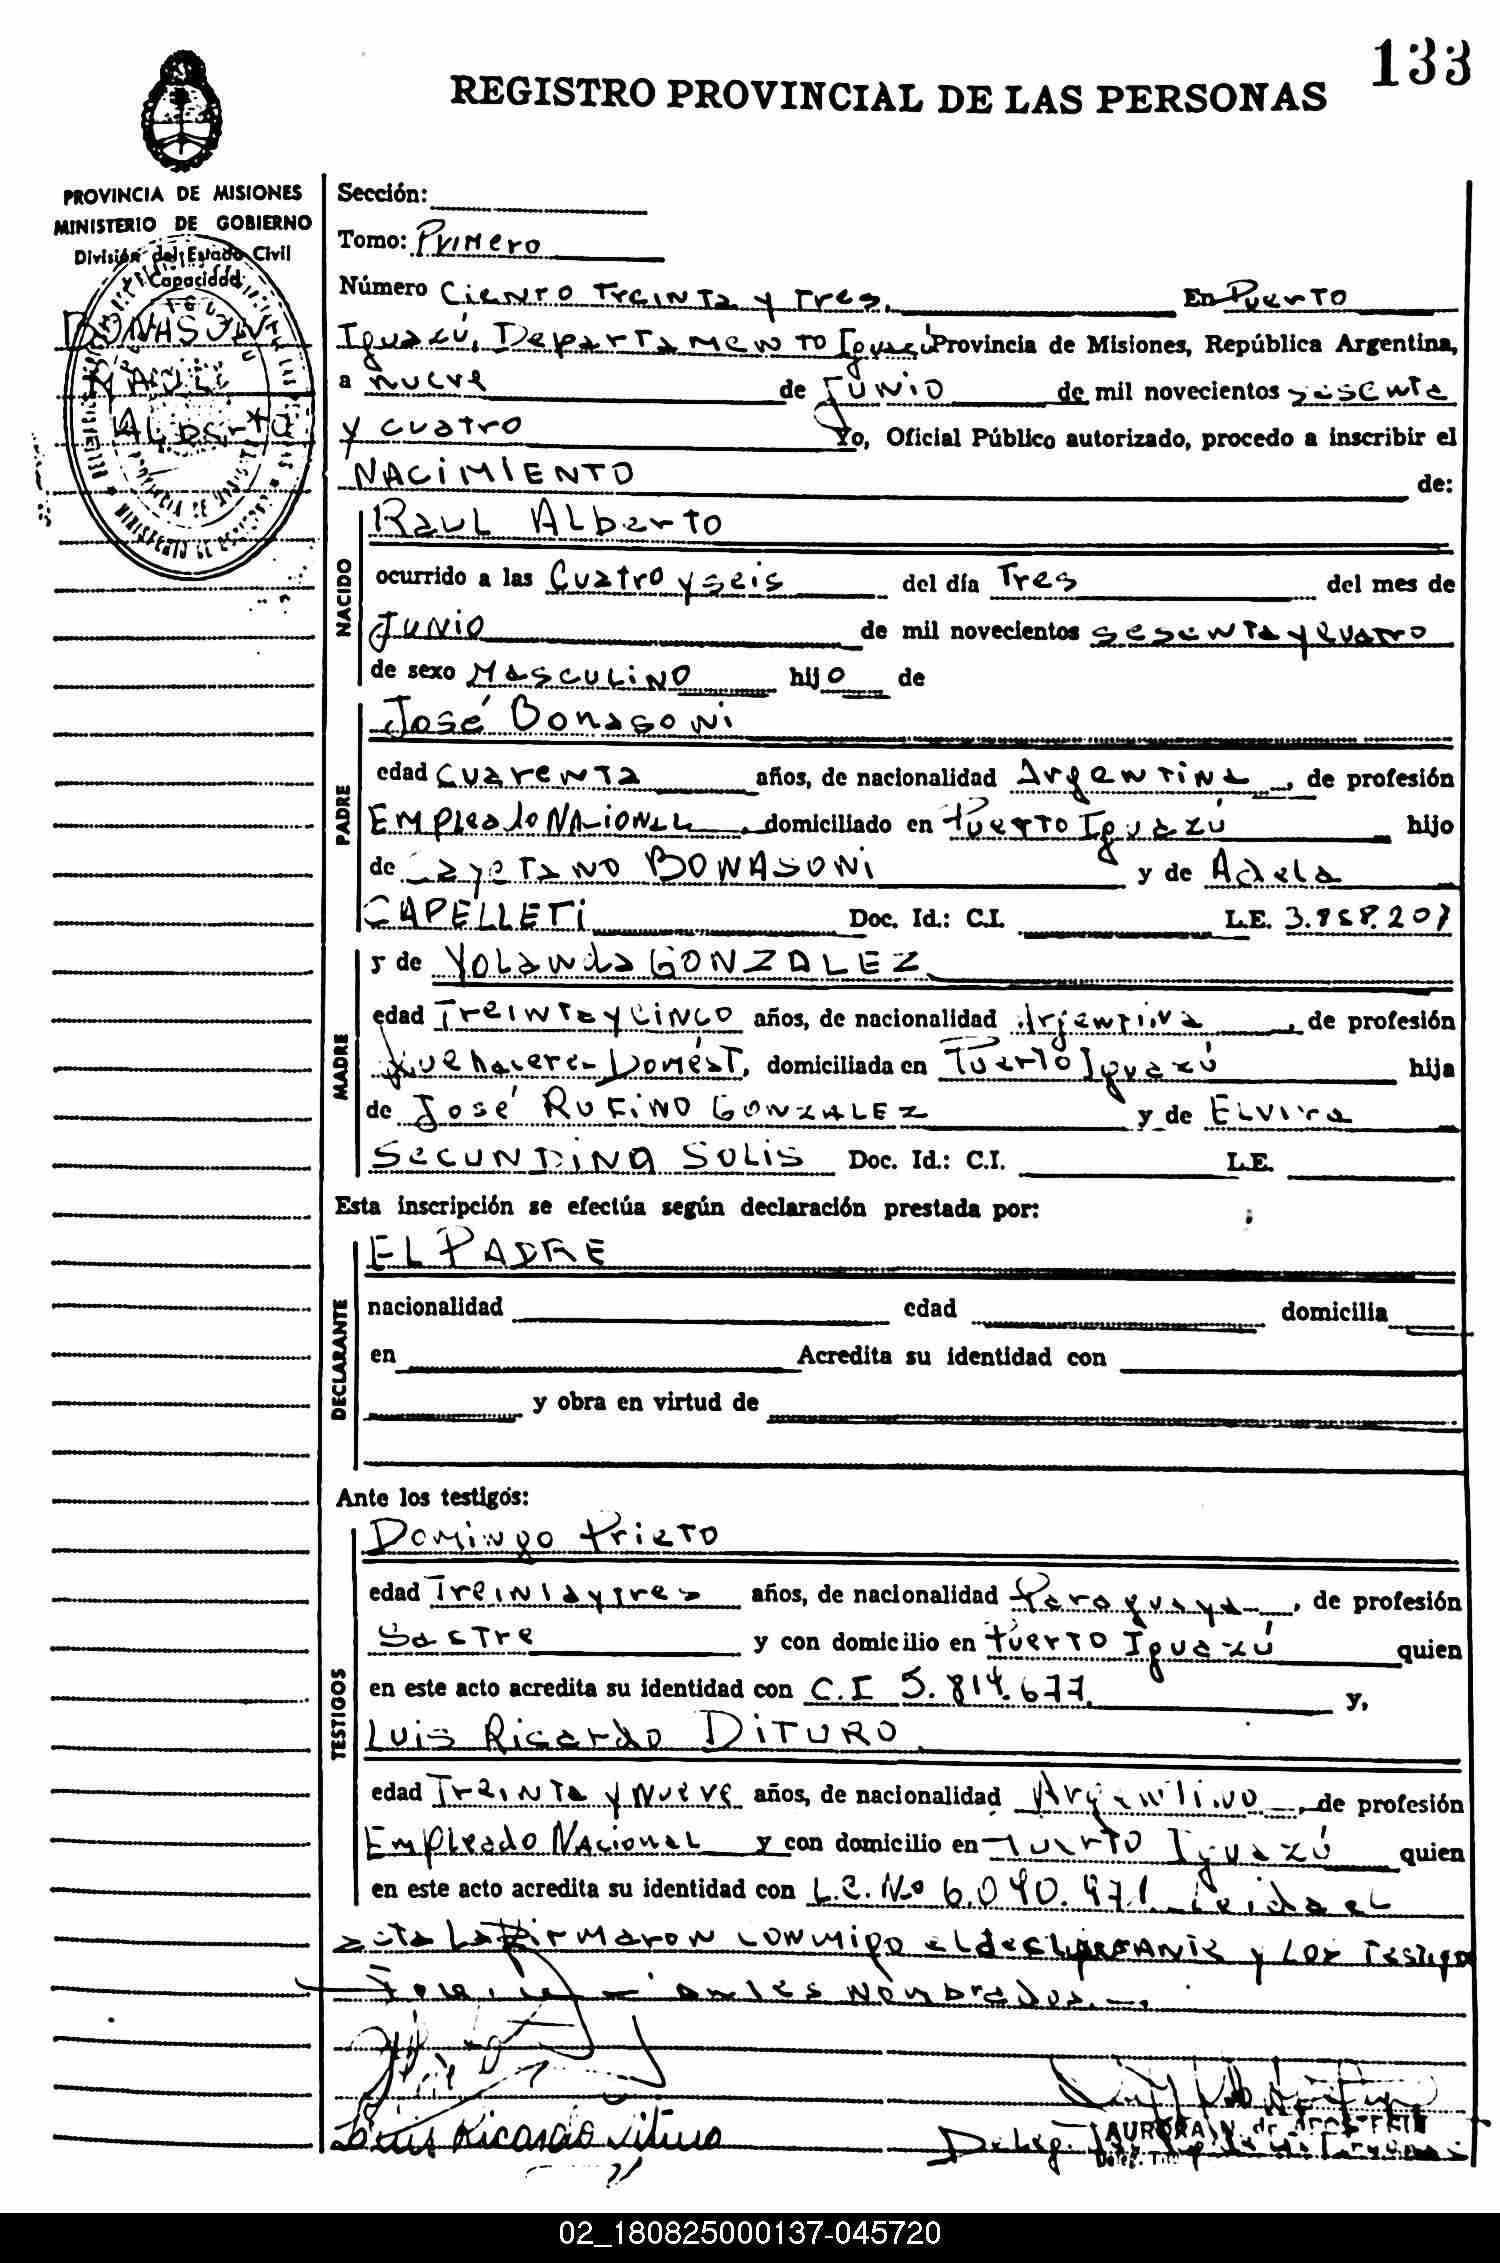 133
REGISTRO PROVINCIAL DE LAS PERSONAS
PROVINCIA DE MISIONES
MINISTERIO DE GOBIERNO
División del Estado Civil
y Capacidad
BONASONI
RAUL
Alberto
Sección:
Tomo: Primero
Número Ciento treinta y tres. En Puerto
Iguazú, Departamento Iguazú Provincia de Misiones, República Argentina,
a nueve de Junio de mil novecientos sesenta
y cuatro Yo, Oficial Público autorizado, procedo a inscribir el
NACIMIENTO de:
NACIDO
Raul Alberto
ocurrido a las Cuatro y seis del día Tres del mes de
Junio de mil novecientos sesenta y cuatro
de sexo Masculino hijo de
PADRE
José Bonasoni
edad cuarenta años, de nacionalidad Argentina, de profesión
Empleado Nacional, domiciliado en Puerto Iguazú hijo
de Cayetano BONASONI y de Adela
CAPELLETI Doc. Id.: C.I. L.E.
MADRE
y de Yolanda GONZALEZ
edad Treinta y cinco años, de nacionalidad Argentina, de profesión
Quehacere- Domést, domiciliada en Puerto Iguazú hija
de José Rufino Gonzalez y de Elvira
Secundina Solis Doc. Id.: C.I. L.E.
Esta inscripción se efectúa según declaración prestada por:
DECLARANTE
EL PADRE
nacionalidad edad domicilia
en Acredita su identidad con
y obra en virtud de
Ante los testigos:
TESTIGOS
Domingo Prieto
edad Treinta y tres años, de nacionalidad Paraguaya, de profesión
Sastre y con domicilio en Puerto Iguazú quien
en este acto acredita su identidad con C.I 5.814.677. y,
Luis Ricardo DITURO
edad Treinta y nueve años, de nacionalidad Argentino, de profesión
Empleado Nacional y con domicilio en Puerto Iguazú quien
en este acto acredita su identidad con L.E. No 6.040.471. Leida el
acta La Firmaron conmigo el declarante y los Testigo
nombrados.-
Luis Ricardo Dituro
Deleg.
AURORA N. de
02_180825000137-045720